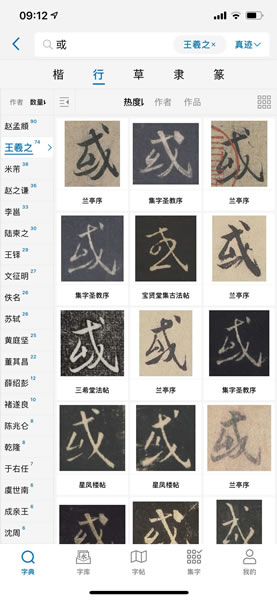 09:12
或
王羲之×
真迹
楷 行 草 隶 篆
作者 数量
热度 作者 作品
赵孟頫 90
王羲之 74
米芾 38
赵之谦 36
李邕 36
陆柬之 30
王铎 29
文征明 27
佚名 26
苏轼 26
黄庭坚 25
董其昌 22
薛绍彭 12
褚遂良 10
陈兆仑 8
乾隆 8
于右任 7
虞世南 6
成亲王 6
沈周 6
或 或 或
兰亭序 集字圣教序 兰亭序
或 或 或
集字圣教序 宝贤堂集古法帖 兰亭序
或 或 或
三希堂法帖 兰亭序 集字圣教序
或 或 或
星凤楼帖 星凤楼帖 兰亭序
或 或 或
字典 字库 字帖 集字 我的